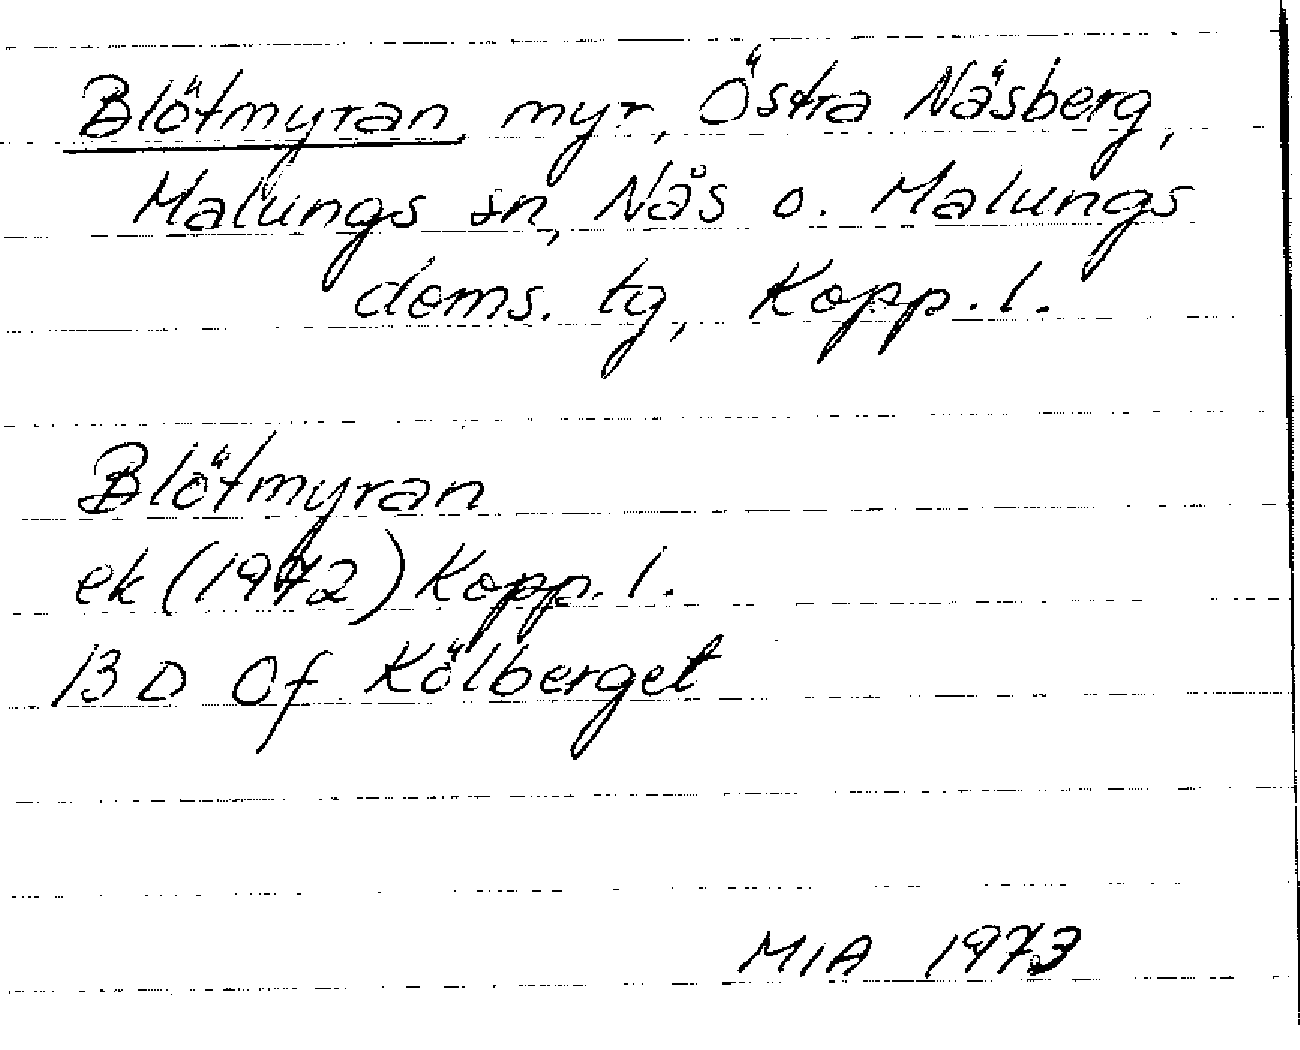 Blötmyran, myr, Östra Näsberg,
Malungs sn, Nås o. Malungs
doms. tg, Kopp. l.
Blötmyran
ek (1972) Kopp. l.
13 D 0f Kölberget
MIA 1973